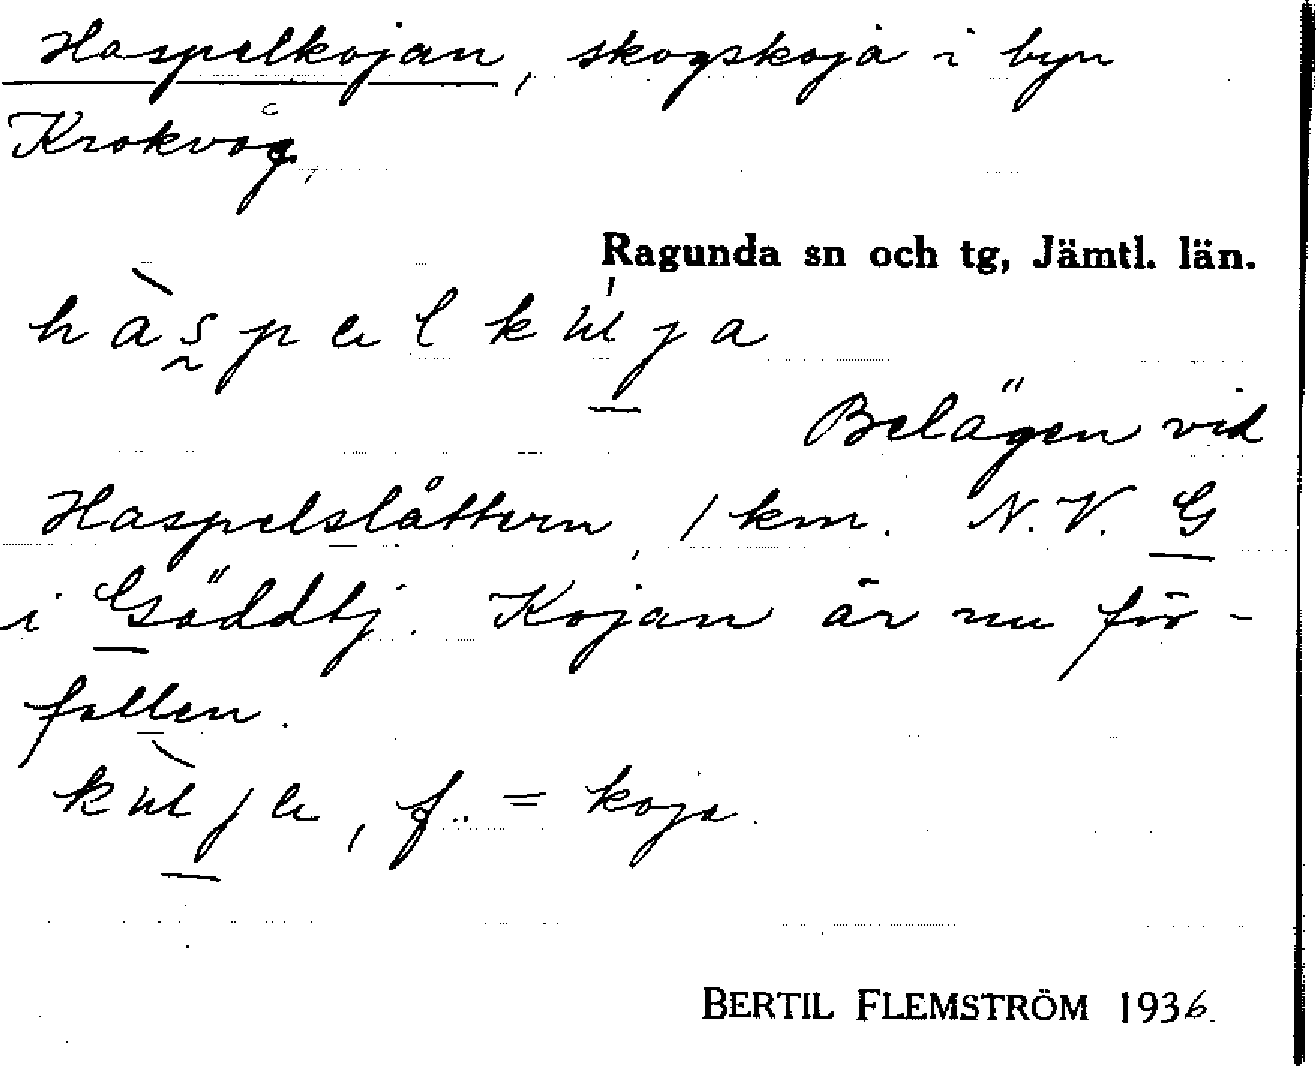 Haspelkojan, skogskoja i byn
Krokvåg,
Ragunda sn och tg, Jämtl. län.
Belägen vid
Haspelslåttern, 1 km. N.V. G
i Gäddtj. Kojan är nu för-
fallen.
f. = koja.
BERTIL FLEMSTRÖM 1936.